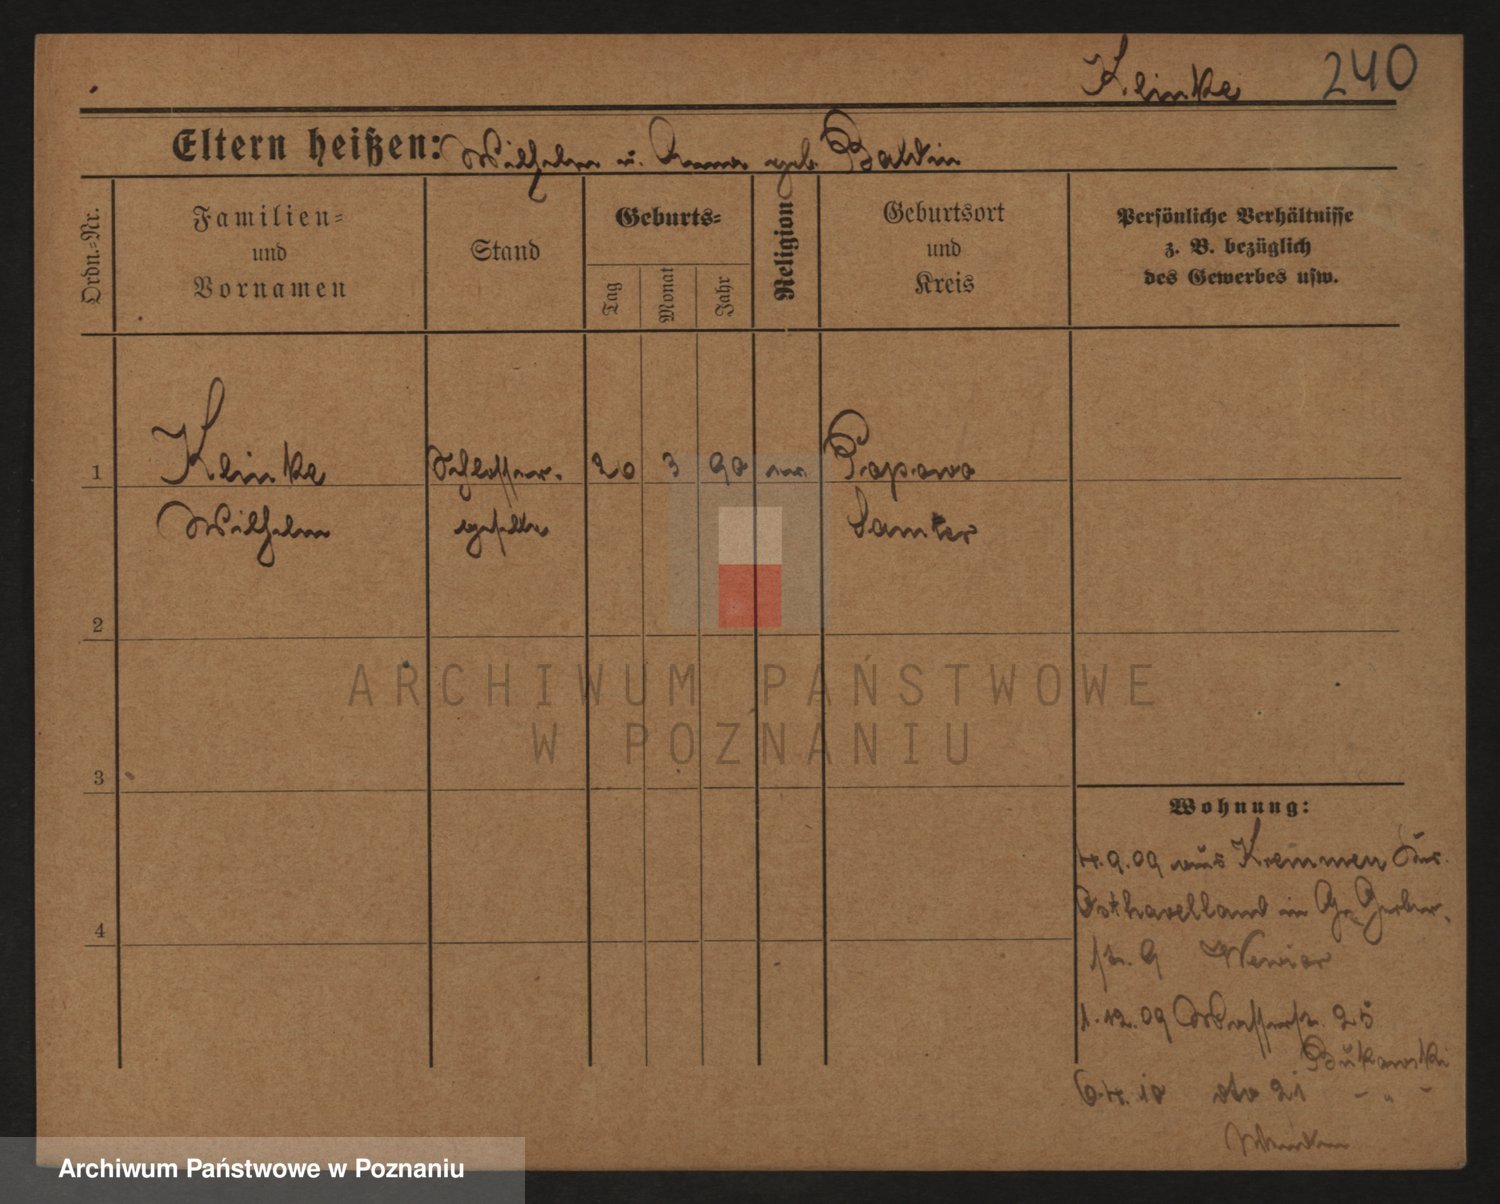 Klinke 240
Eltern heißen: Wilhelm u. Anna geb. Baldin
Ordn.=Nr.
Familien=
und
Vornamen
Stand
Geburts=
Tag
Monat
Jahr
Religion
Geburtsort
und
Kreis
Persönliche Verhältnisse
z. B. bezüglich
des Gewerbes usw.
1 Klinke Schlosser- 20 3 90 ev. Popowo
Wilhelm geselle Samter
2
ARCHIWUM PAŃSTWOWE
W POZNANIU
3
Wohnung:
4.9.09 aus Kremmen
Osthavelland in Gr. Gerber-
4
str. 9
1.12.09 Wasserstr. 25
Bukowski
6.4.10 dto 21 - " -
Archiwum Państwowe w Poznaniu